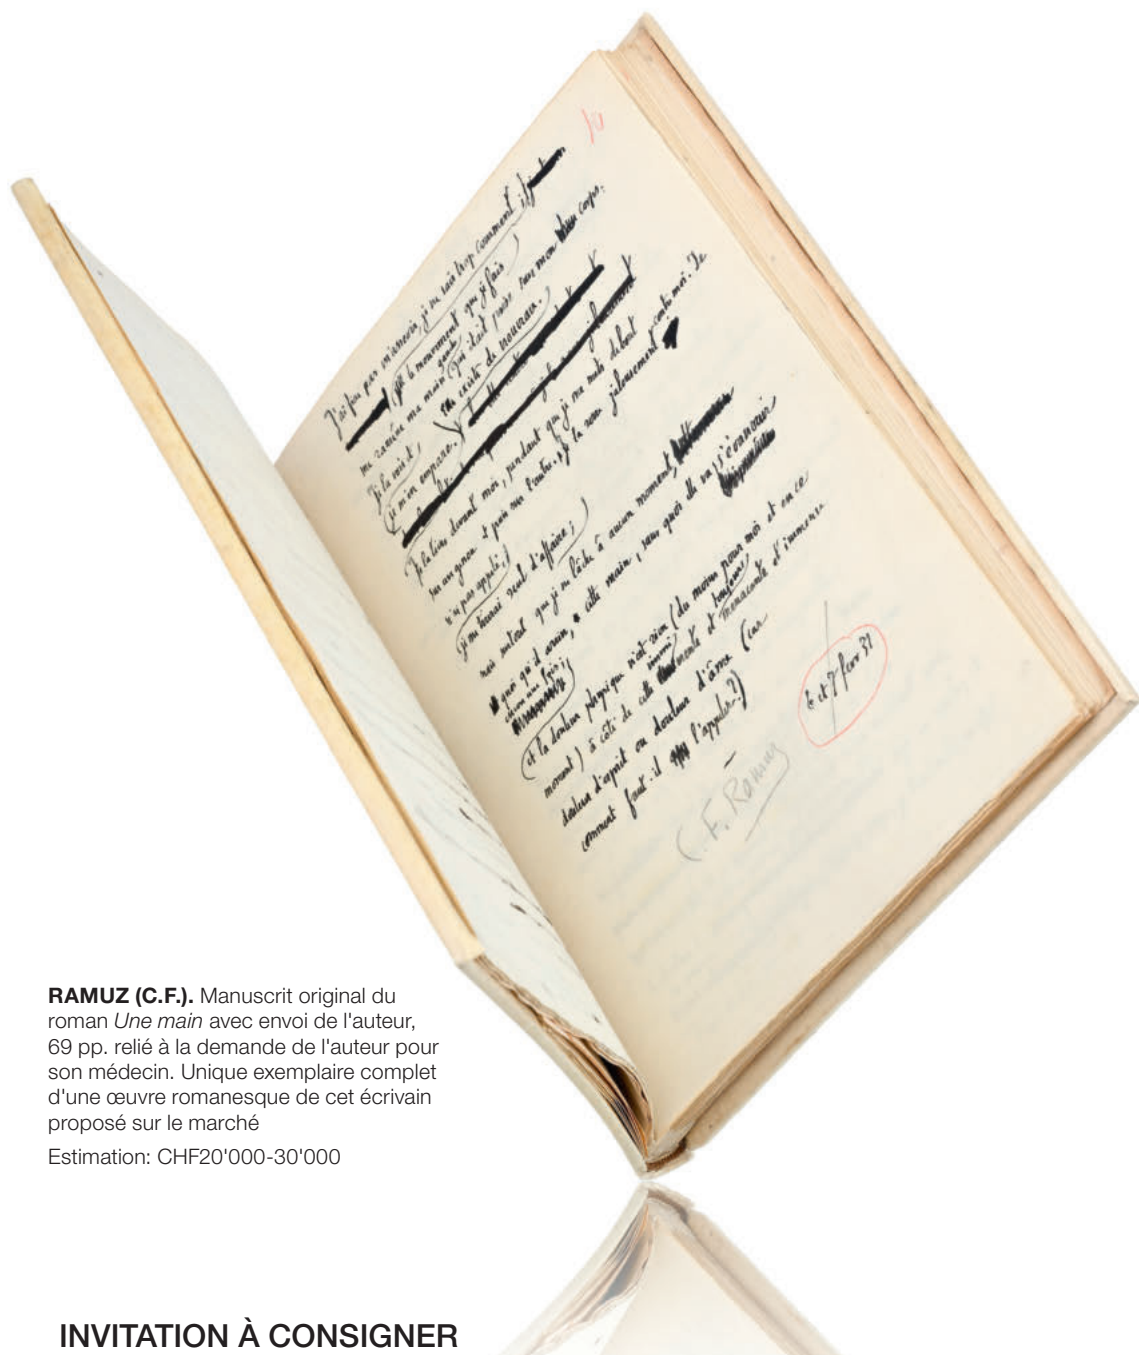 je ne sais trop comment ;
le mouvement que je fais
me ramène ma main gauche qui était posée sur mon corps.
Je la vois et existe de nouveau.
je m'en empare.
Je la tiens devant moi, pendant que je me mets debout
sur un genou et puis sur l'autre. Je la serre jalousement contre moi. Je
n'ai pas appelé ;
je me tirerai seul d'affaire ;
mais surtout que je ne lâche à aucun moment,
quoi qu'il arrive, cette main, sans quoi elle va s'évanouir
encore une fois ;
(et la douleur physique n'est rien (du moins pour moi et en ce
moment) à côté de cette toujours menaçante et immense
douleur d'esprit ou douleur d'âme (car
comment faut-il l'appeler ?)
6 et 7 fevr 31
C. F. Ramuz
RAMUZ (C.F.). Manuscrit original du
roman Une main avec envoi de l'auteur,
69 pp. relié à la demande de l'auteur pour
son médecin. Unique exemplaire complet
d'une œuvre romanesque de cet écrivain
proposé sur le marché
Estimation: CHF20'000-30'000
INVITATION À CONSIGNER